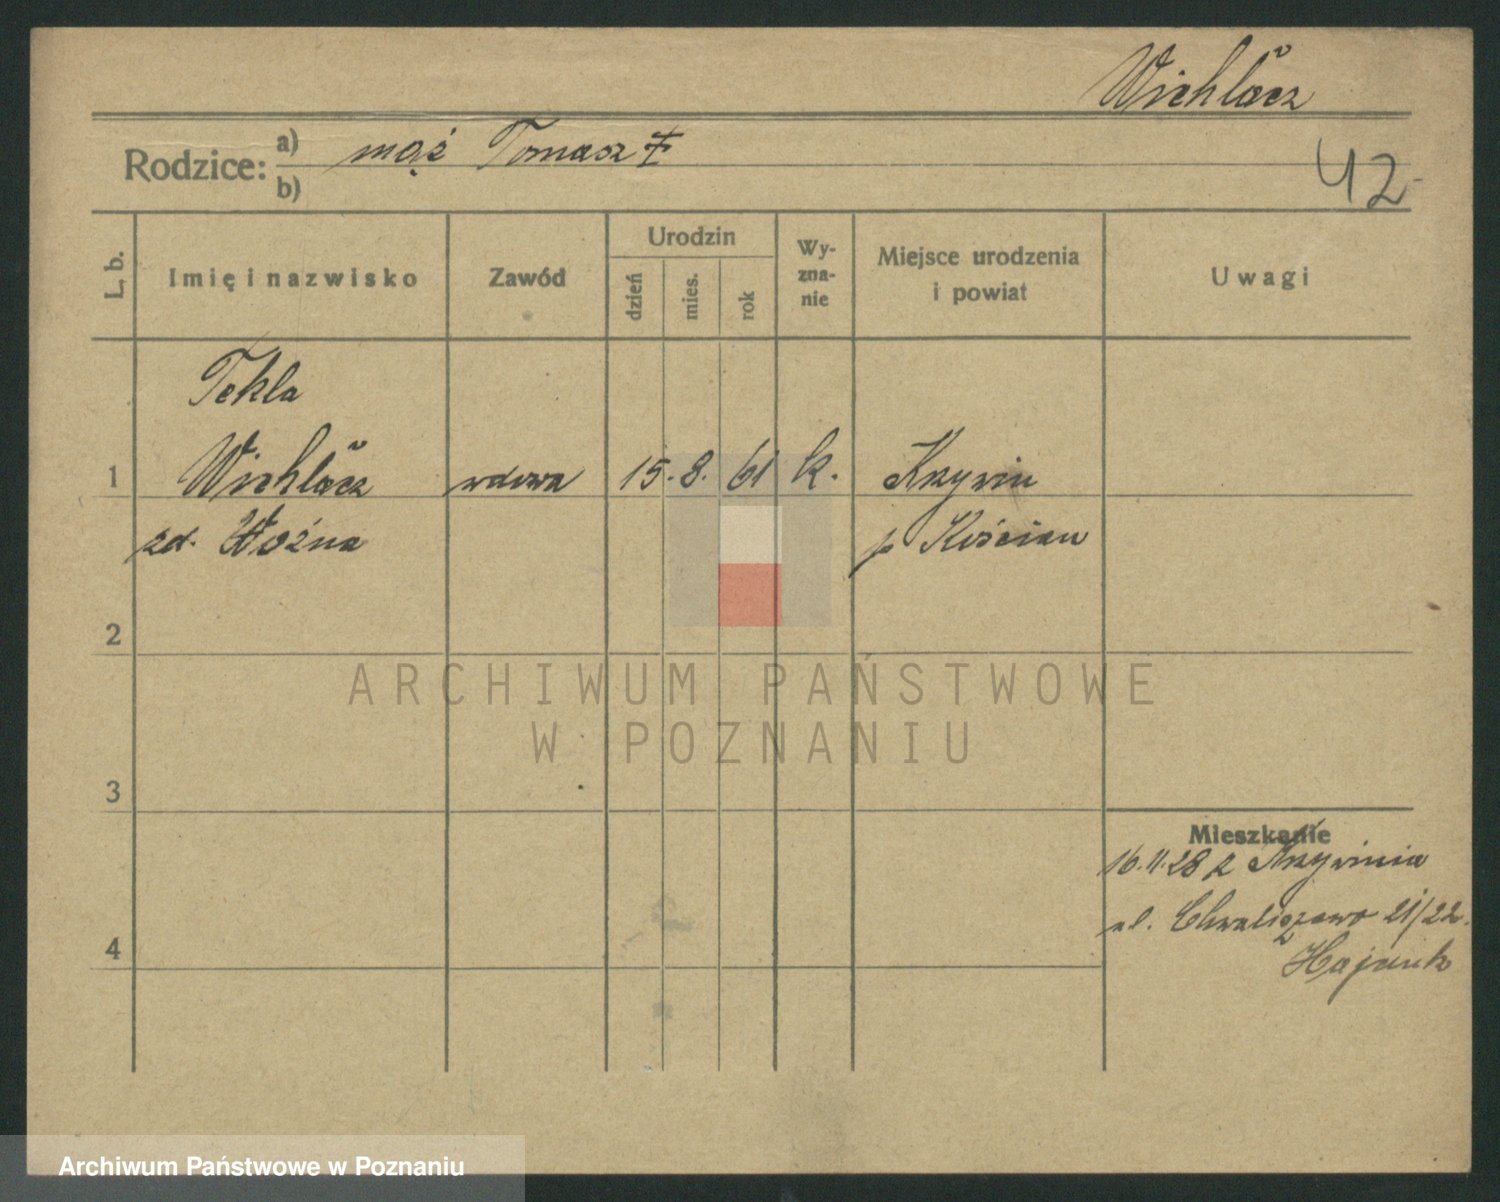 Wichłacz
Rodzice: a) mąż Tomasz ‡
b)
42
L. b. Imię i nazwisko Zawód Urodzin dzień mies. rok Wy-zna-nie Miejsce urodzenia i powiat Uwagi
Tekla
1 Wichłacz wdowa 15. 8. 61 k. Krzywin
zd. Woźna p Kościan
2
ARCHIWUM PAŃSTWOWE
W POZNANIU
3
Mieszkanie
16.11.28 z Krzywinia
ul. Chwaliszewo 21/22.
4
Archiwum Państwowe w Poznaniu